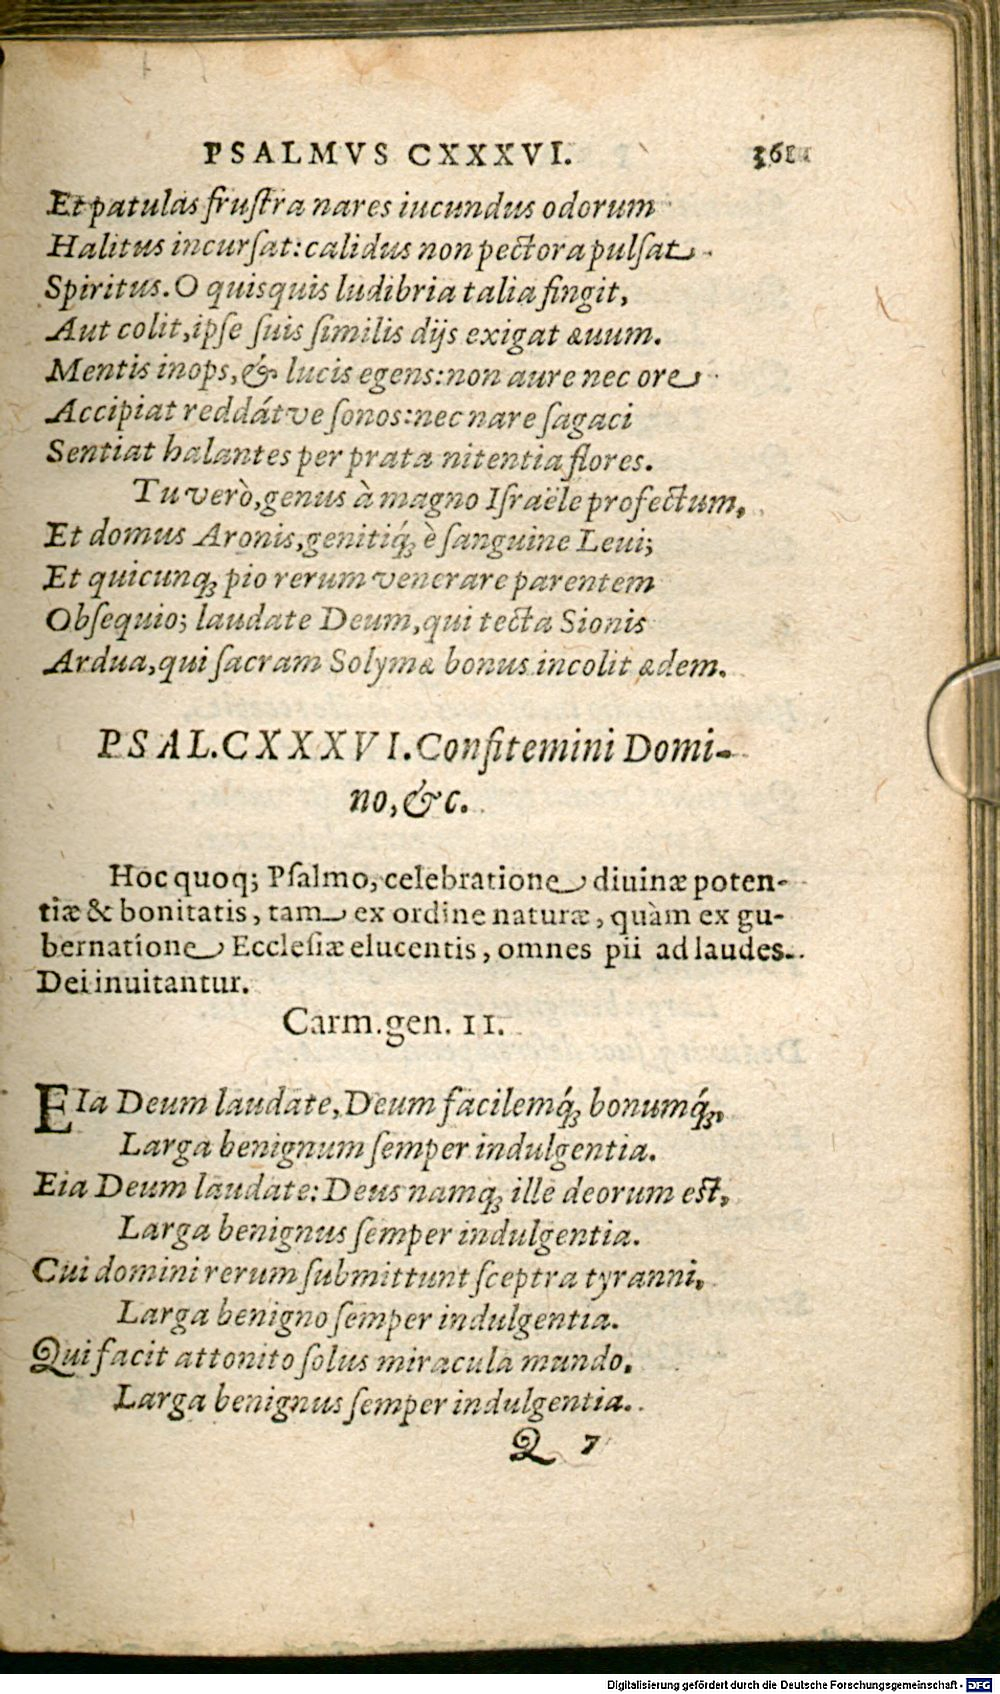 PSALMVS CXXXVI.
Et patulas fruſtra nares iucundus odorum
Halitus incurſat: calidus non pectora pulſat
Spiritus. O quisquis ludibria talia fingit,
Aut colit, ipſe ſuis ſimilis dijs exigat æuum.
Mentis inops, & lucis egens: non aure nec ore
Accipiat reddátve ſonos: nec nare ſagaci
Sentiat halantes per prata nitentia flores.
Tu verò, genus à magno Iſraële profectum,
Et domus Aronis, genitiq́ꝫ è ſanguine Leui;
Et quicunqꝫ pio rerum venerare parentem
Obſequio; laudate Deum, qui tecta Sionis
Ardua, qui ſacram Solymæ bonus incolit ædem.
PSAL. CXXXVI. Confitemini Domi-
no, &c.
Hoc quoq; Pſalmo, celebratione diuinæ poten-
tiæ & bonitatis, tam ex ordine naturæ, quàm ex gu-
bernatione Eccleſiæ elucentis, omnes pii ad laudes
Dei inuitantur.
Carm. gen. 11.
EIa Deum laudate, Deum facilemq́ꝫ bonumq́ꝫ,
Larga benignum ſemper indulgentia.
Eia Deum laudate: Deus namqꝫ ille deorum eſt,
Larga benignus ſemper indulgentia.
Cui domini rerum ſubmittunt ſceptra tyranni,
Larga benigno ſemper indulgentia.
Qui facit attonito ſolus miracula mundo,
Larga benignus ſemper indulgentia.
Q 7
Digitalisierung gefördert durch die Deutsche Forschungsgemeinschaft - DFG